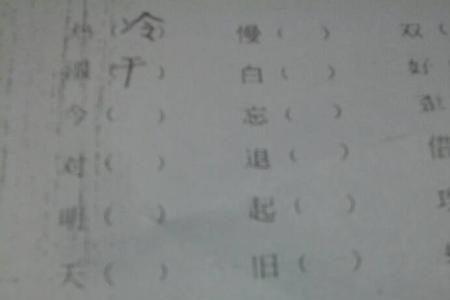 热（冷） 慢（ ） 双（
湿（干） 白（ ） 好（
今（ ） 忘（ ）
对（ ） 退（ ） 借
明（ ） 起（ ）
天（ ） 旧（ ）